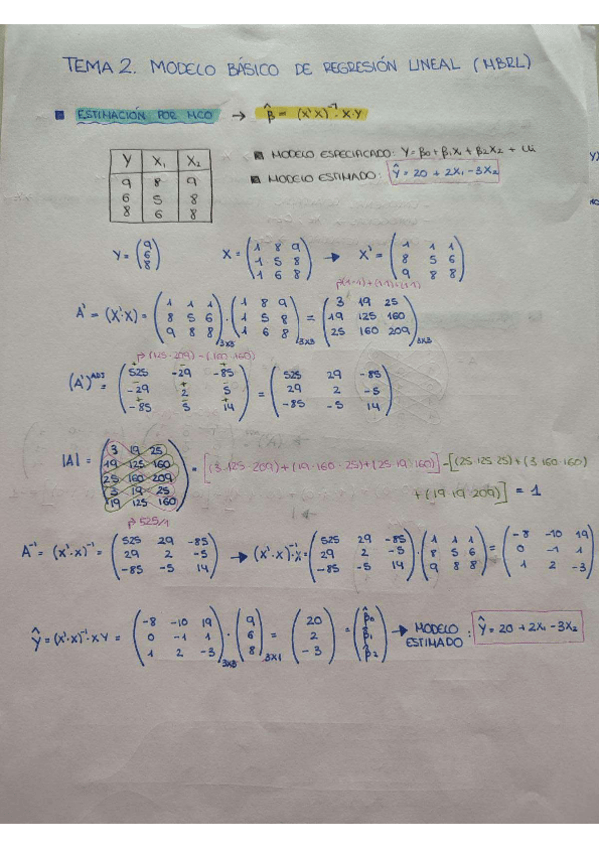 TEMA 2. MODELO BÁSICO DE REGRESIÓN LINEAL (MBRL)
ESTIMACIÓN POR MCO → β̂ = (X'X)⁻¹·X·Y
Y X₁ X₂
9 8 9
6 5 8
8 6 8
MODELO ESPECIFICADO: Y = β₀ + β₁X₁ + β₂X₂ + Ui
MODELO ESTIMADO: Ŷ = 20 + 2X₁ - 3X₂
Y = (9 6 8) X = (1 8 9 / 1 5 8 / 1 6 8) → X' = (1 1 1 / 8 5 6 / 9 8 8)
A' = (X'·X) = (1 1 1 / 8 5 6 / 9 8 8)3x3 · (1 8 9 / 1 5 8 / 1 6 8)3x3 = (3 19 25 / 19 125 160 / 25 160 209)3x3
(125·209) - (160·160)
(A')ᴬᴰᴶ = (525 -29 -85 / -29 2 5 / -85 5 14) = (525 29 -85 / 29 2 -5 / -85 -5 14)
|A| = (3 19 25 / 19 125 160 / 25 160 209 / 3 19 25 / 19 125 160) = [(3·125·209) + (19·160·25) + (25·19·160)] - [(25·125·25) + (3·160·160)
+ (19·19·209)] = 1
525/1
A⁻¹ = (X'·X)⁻¹ = (525 29 -85 / 29 2 -5 / -85 -5 14) → (X'·X)⁻¹·X = (525 29 -85 / 29 2 -5 / -85 -5 14) · (1 1 1 / 8 5 6 / 9 8 8) = (-8 -10 19 / 0 -1 1 / 1 2 -3)
Ŷ = (X'·X)⁻¹·XY = (-8 -10 19 / 0 -1 1 / 1 2 -3)3x3 · (9 6 8)3x1 = (20 2 -3) = (β̂₀ β̂₁ β̂₂) → MODELO ESTIMADO : Ŷ = 20 + 2X₁ - 3X₂